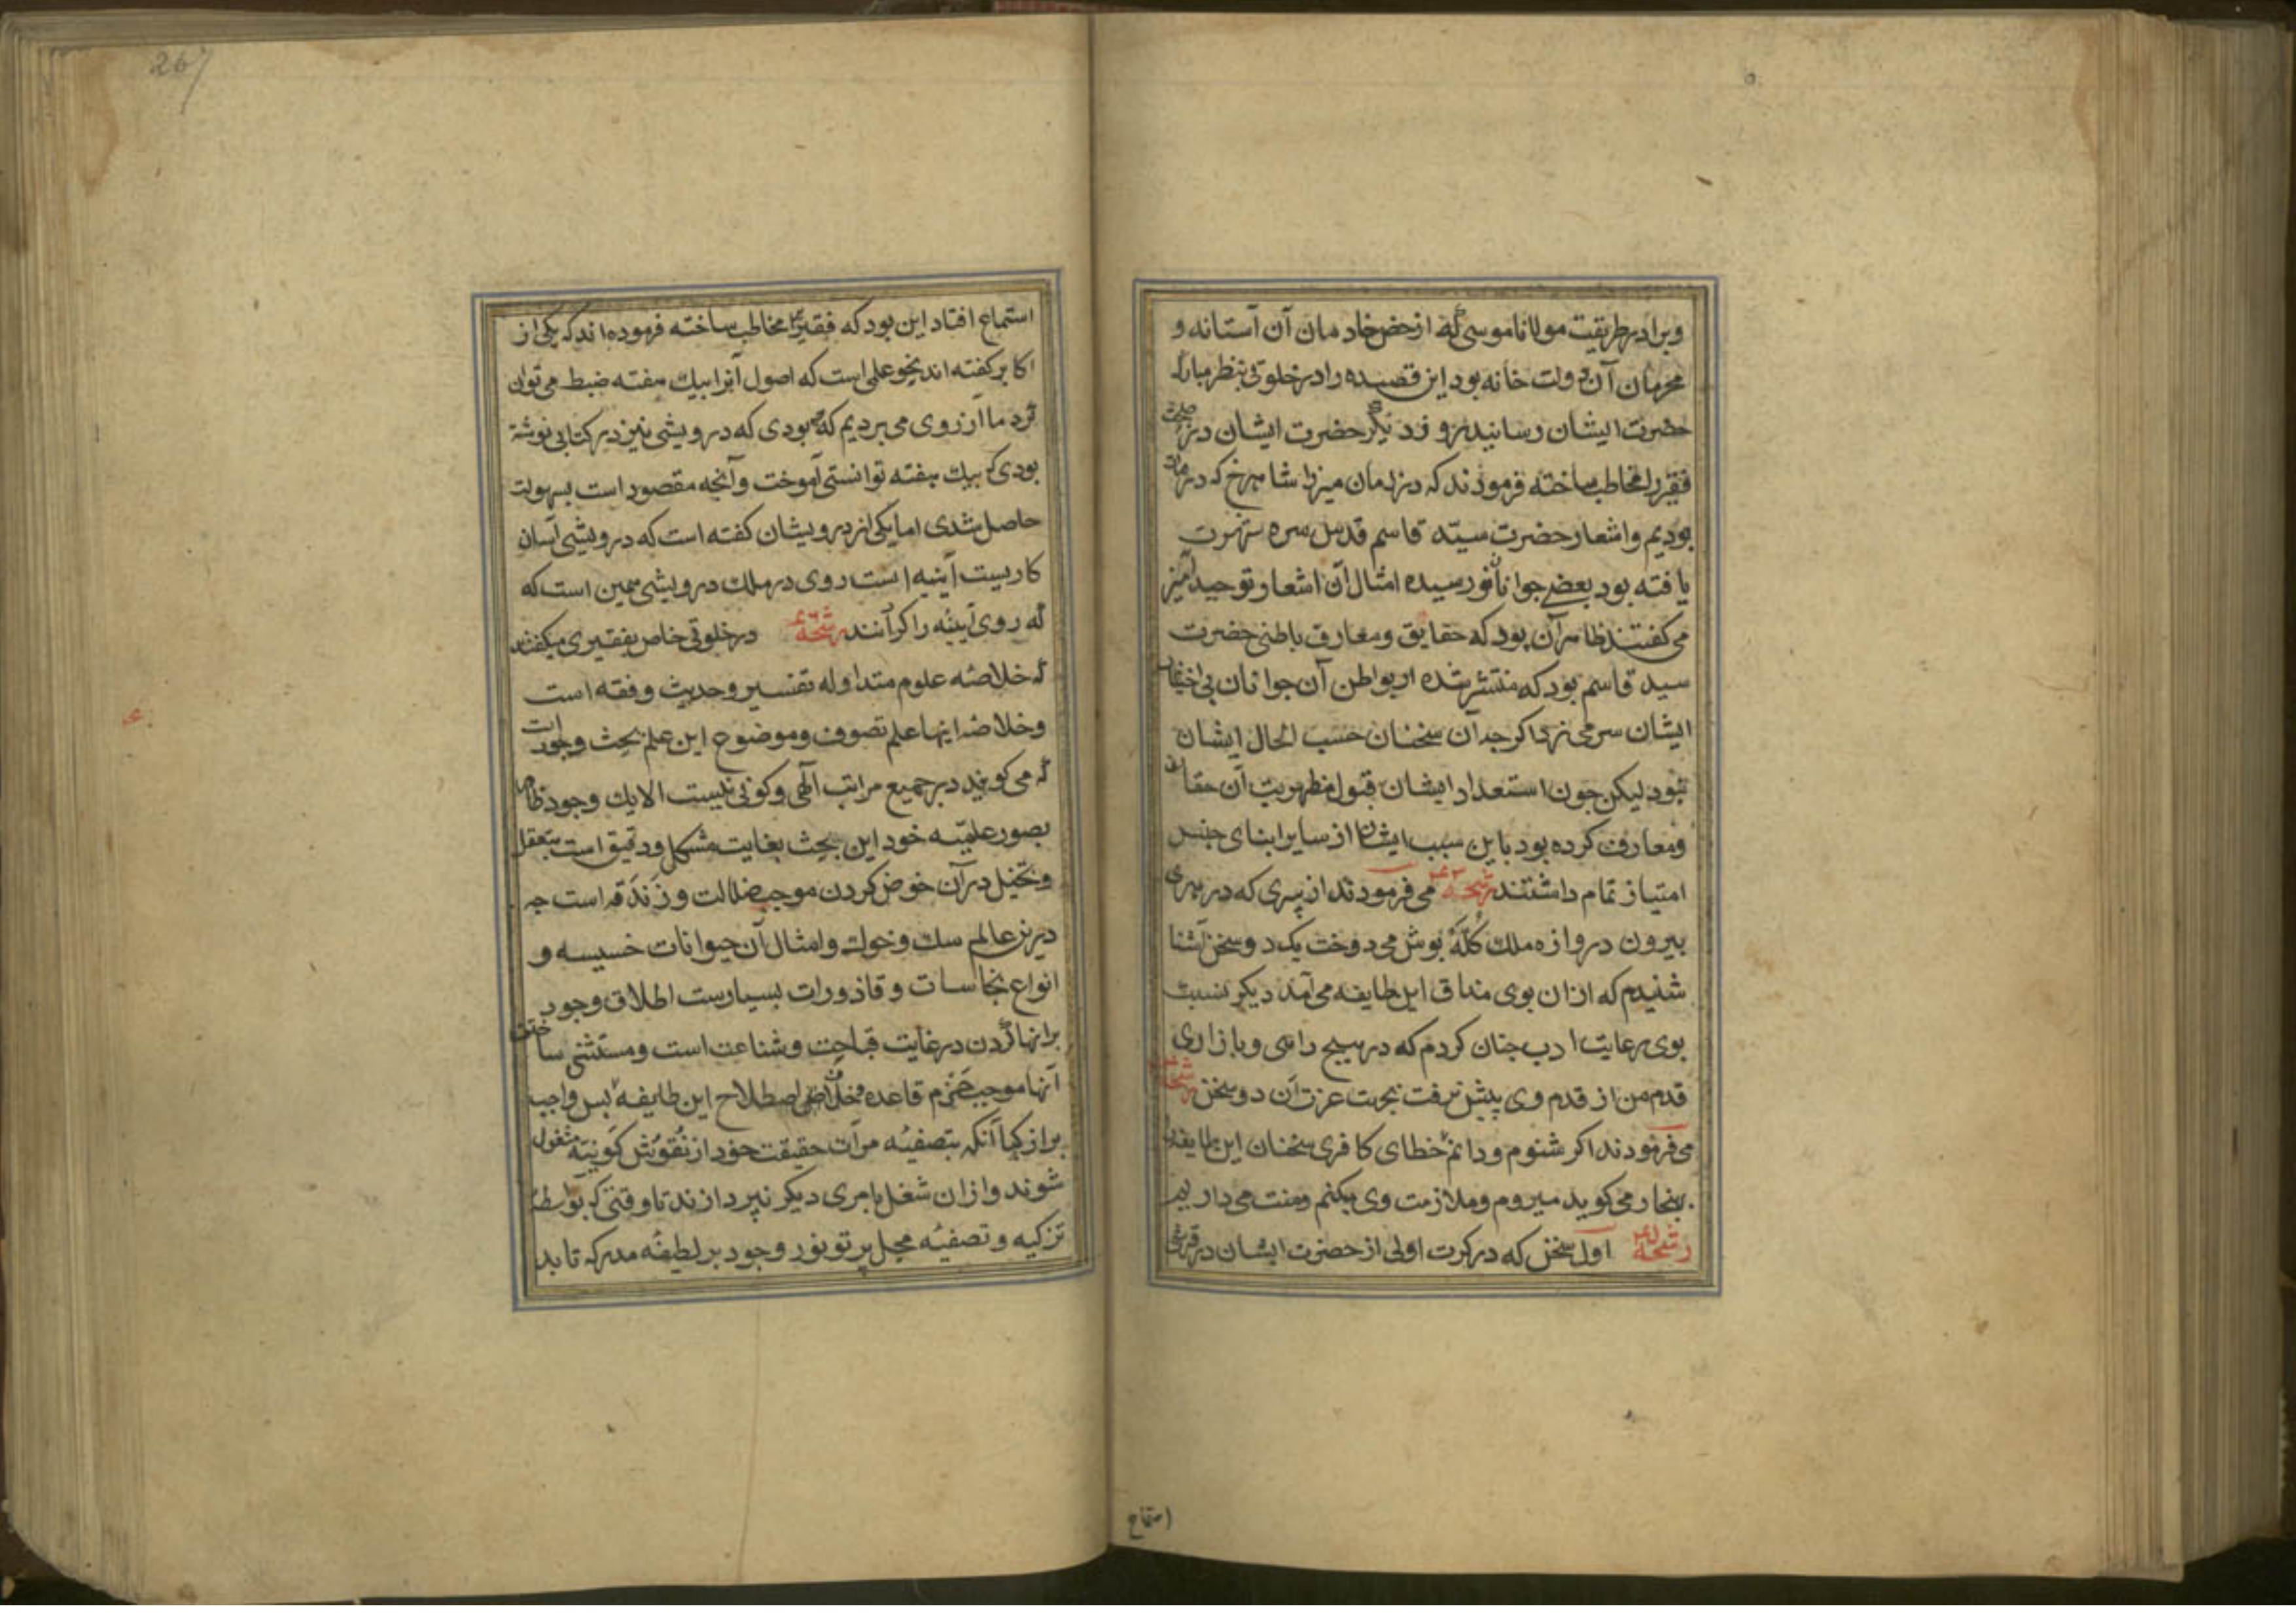 وبرادر طریقت مولانا موسی که از خض خادمان آن آستانه و
محرمان آن دولت خانه بود این قصیده را در خلوتی بنظر مبارک
حضرت ایشان رسانیدند و زد دیگر حضرت ایشان در
فقیر را مخاطب ساخته فرمودند که در زمان میرزا شاهرخ که در
بودیم و اشعار حضرت سید قاسم قدس سره شهرت
یافته بود بعضی جوانان نورسیده امثال آن اشعار توحید آمیز
می کفتند ظاهر آن بود که حقایق و معارف باطنی حضرت
سید قاسم بود که منتشر شده از بواطن آن جوانان بی اختیار
ایشان سر می زد اکرجه آن سخنان حسب الحال ایشان
نبود لیکن جون استعداد ایشان قبول مظهریت آن حقایق
ومعارف کرده بود باین سبب ایشان از سایر ابنای جنس
امتیاز تمام داشتند رشحه ۴۳ می فرمودند از پیری که در هری
بیرون دروازه ملک کله پوش می دوخت یک دو سخن آشنا
شنیدم که ازان بوی مذاق این طایفه می آمد دیکر نسبت
بوی رعایت ادب جنان کردم که در هیچ راهی و بازاری
قدم من از قدم وی پیش نرفت بجهت عزت آن دو سخن رشحه
می فرمودند اکر شنوم و دانم خطای کافری سخنان این طایفه
بهنجار می کوید میروم و ملازمت وی میکنم و منت می داریم
رشحه اول سخن که در کرت اولی از حضرت ایشان در قرشی
استماع
267
استماع افتاد این بود که فقیر را مخاطب ساخته فرموده اند که یکی از
اکابر کفته اند نحو علمی است که اصول آنرا بیک هفته ضبط می توان
کرد ما آرزوی می بردیم که بودی که درویشی نیز در کتابی نوشته
بودی که بیک هفته توانستی آموخت و آنچه مقصود است بسهولت
حاصل شدی اما یکی از درویشان کفته است که درویشی آسان
کاریست آینه است روی در ملک درویشی همین است که
که روی آینه را کردانند رشحه در خلوتی خاص بفقیری میکفتند
که خلاصه علوم متداوله تفسیر و حدیث و فقه است
وخلاصه اینها علم تصوف و موضوع این علم بحث وجود است
که می کویند در جمیع مراتب الهی و کونی نیست الا یک وجود ظاهر
بصور علمیه خود این بحث بغایت مشکل و دقیق است بتعقل
و تخیل در آن خوض کردن موجب ضلالت و زندقه است جه
درین عالم سک و خوک و امثال آن حیوانات خسیسه و
انواع نجاسات و قاذورات بسیارست اطلاق وجود
برانها کردن در غایت قباحت و شناعت است و مستثنی ساختن
آنها موجب خرم قاعده اصطلاح این طایفه پس واجب
بر ازکیا آنکه بتصفیه مرآت حقیقت خود از نقوش کونیه مشغول
شوند و ازان شغل بامری دیکر نپردازند تا وقتی که بواسطه
تزکیه و تصفیه محل پرتو نور وجود بر لطیفه مدرکه تابد